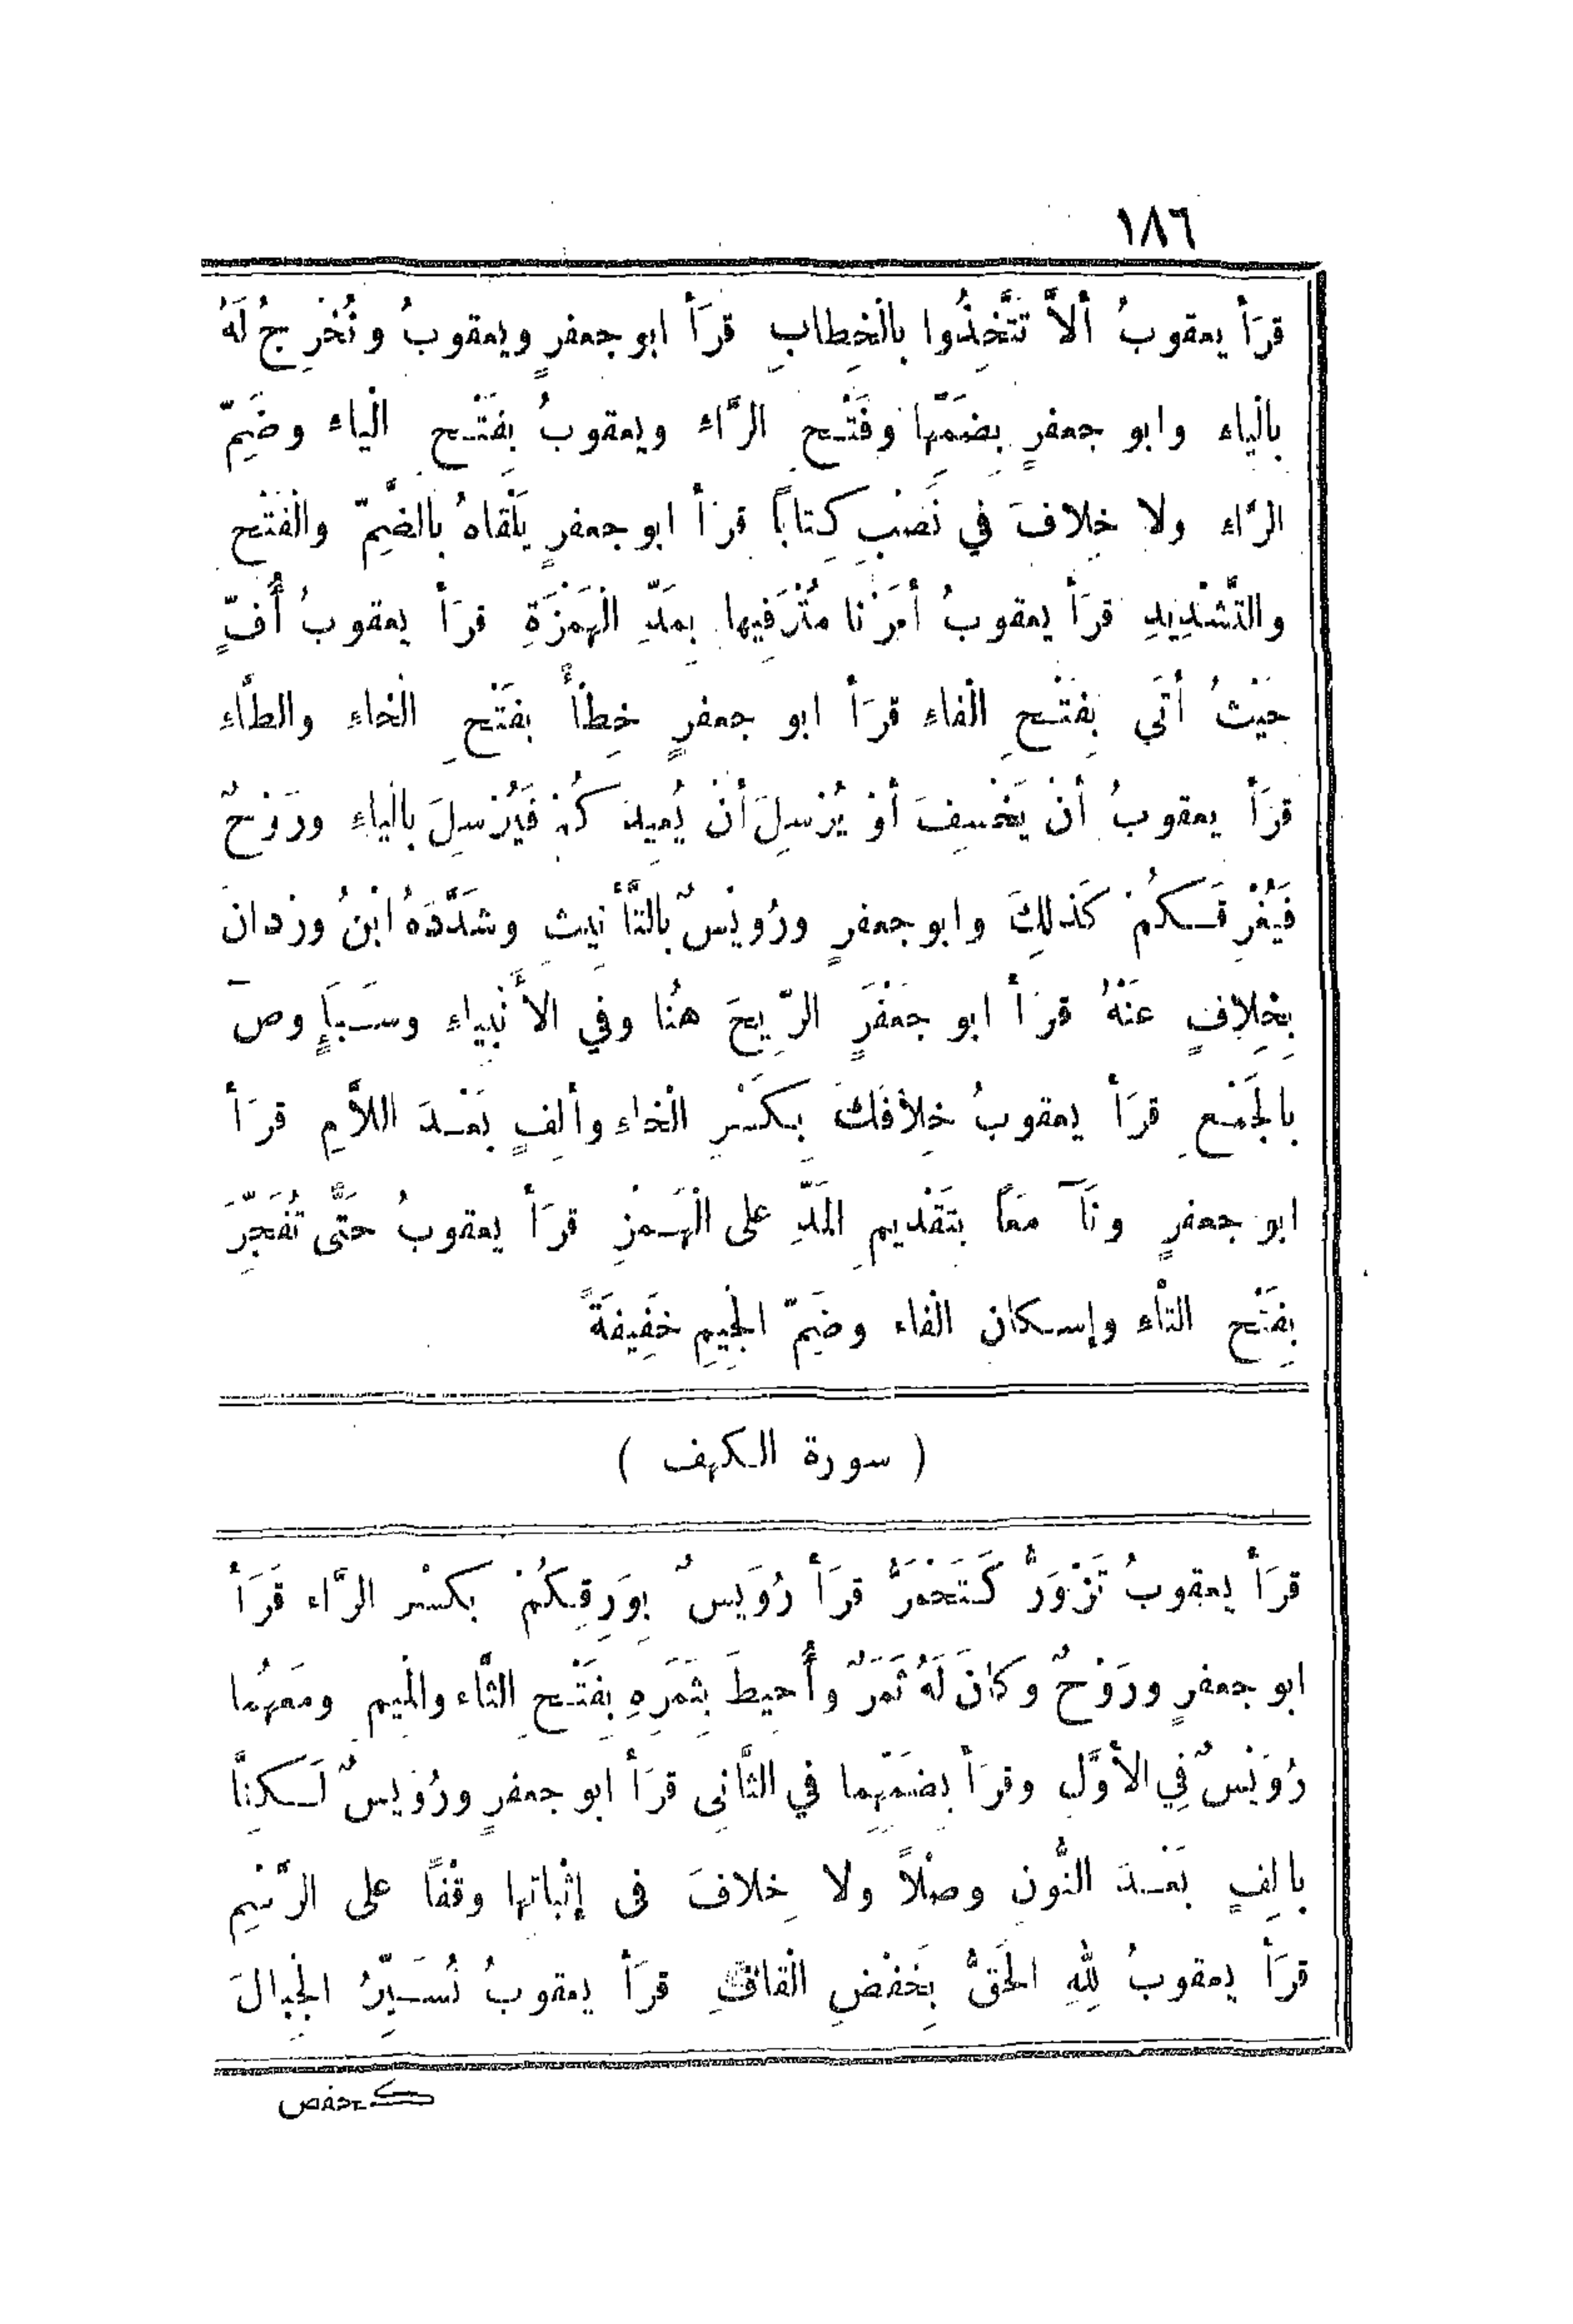 ١٨٦
قرَأ يعقوبُ ألاَّ تَتَّخِذُوا بالْخِطابِ قرَأ ابو جعفرٍ ويعقوبُ ونُخْرِجُ لَهُ
بالْياء وابو جعفرٍ بِضَمِّها وفَتْح الرَّاء ويعقوبُ بِفَتْح الْياء وضَمِّ
الرَّاء ولا خِلافَ في نَصْبِ كِتاباً قرَأ ابو جعفرٍ يَلْقاهُ بالضَّمِّ والْفَتْح
والتَّشْدِيدِ قرَأ يعقوبُ أمَرْنا مُتْرَفِيها بِمَدِّ الْهَمْزَةِ قرَأ يعقوبُ أُفٍّ
حَيْثُ أتَي بِفَتْحِ الْفاءِ قرَأ ابو جعفرٍ خِطْأً بفَتْحِ الْخاءِ والطَّاءِ
قرَأ يعقوبُ أنْ يَخْسِفَ أوْ يُرْسِلَ أنْ يُعِيدَكُمْ فَيُرْسِلَ بالْياءِ ورَوْحٌ
فَيُغْرِقَكُمْ كَذلِكَ وابو جعفرٍ ورُوَيْسٌ بالتَّأْنِيثِ وشَدَّدَهُ ابْنُ ورْدانَ
بِخِلافٍ عَنْهُ قرَأ ابو جَعْفَرٍ الرِّيحَ هُنا وفي الأَنْبِياء وسَبَإٍ وصَ
بالْجَمْعِ قرَأ يعقوبُ خِلاَفَكَ بِكَسْرِ الْخاء وألِفٍ بَعْدَ اللاَّمِ قرَأ
ابو جعفرٍ ونَآ مَعاً بتَقْدِيمِ المَدِّ على الْهَمْزِ قرَأ يعقوبُ حَتَّى تُفَجِّرَ
بِفَتْح التَّاء وإسكان الْفاء وضَمِّ الْجِيمِ خَفِيفَةً
( سورة الكهف )
قرَأ يعقوبُ تَزْوَرُّ كَتَحْمَرُّ قرَأ رُوَيسٌ بِوَرِقِكُمْ بكسْر الرَّاء قَرَأ
ابو جعفرٍ ورَوْحٌ وكانَ لَهُ ثَمَرٌ وأُحِيطَ بِثَمَرِهِ بِفَتْحِ الثَّاء والْمِيم ومَعهُما
رُوَيْسٌ فِي الأوَّلِ وقرَأ بِضَمِّهِما في الثَّانِى قرَأ ابو جعفرٍ ورُوَيسٌ لَكِنَّا
بالِفٍ بَعْدَ النُّون وصْلاً ولا خِلافَ فى إثْباتها وقْفاً على الرَّسْمِ
قرَأ يعقوبُ لِلهِ الْحَقُّ بِخَفْضِ الْقافِ قرَأ يعقوبُ نُسَيِّرُ الْجِبالَ
كحفص